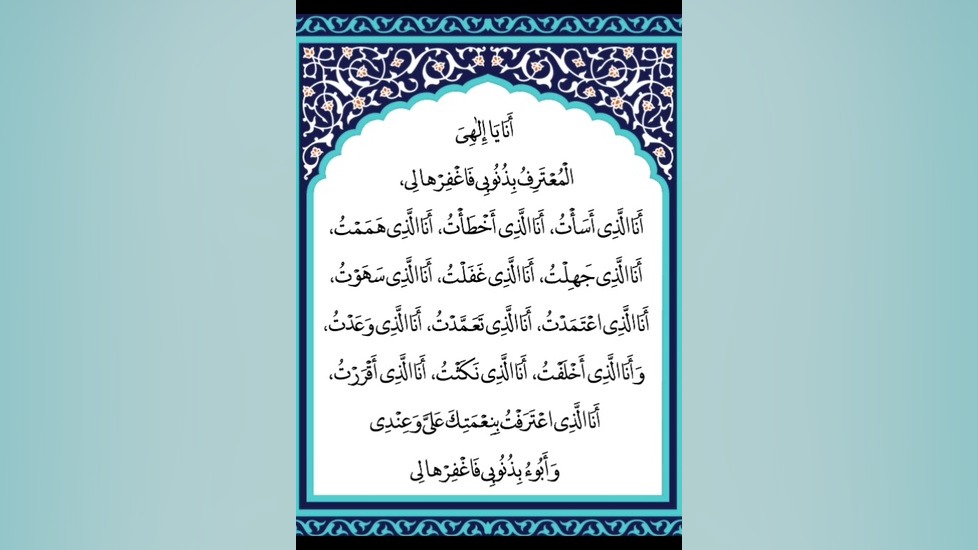 أَنَا يَا إِلٰهِيَ
الْمُعْتَرِفُ بِذُنُوبِي فَاغْفِرْها لِي،
أَنَا الَّذِي أَسَأْتُ، أَنَا الَّذِي أَخْطَأْتُ، أَنَا الَّذِي هَمَمْتُ،
أَنَا الَّذِي جَهِلْتُ، أَنَا الَّذِي غَفَلْتُ، أَنَا الَّذِي سَهَوْتُ،
أَنَا الَّذِي اعْتَمَدْتُ، أَنَا الَّذِي تَعَمَّدْتُ، أَنَا الَّذِي وَعَدْتُ،
وَأَنَا الَّذِي أَخْلَفْتُ، أَنَا الَّذِي نَكَثْتُ، أَنَا الَّذِي أَقْرَرْتُ،
أَنَا الَّذِي اعْتَرَفْتُ بِنِعْمَتِكَ عَلَيَّ وَعِنْدِي
وَأَبُوءُ بِذُنُوبِي فَاغْفِرْها لِي